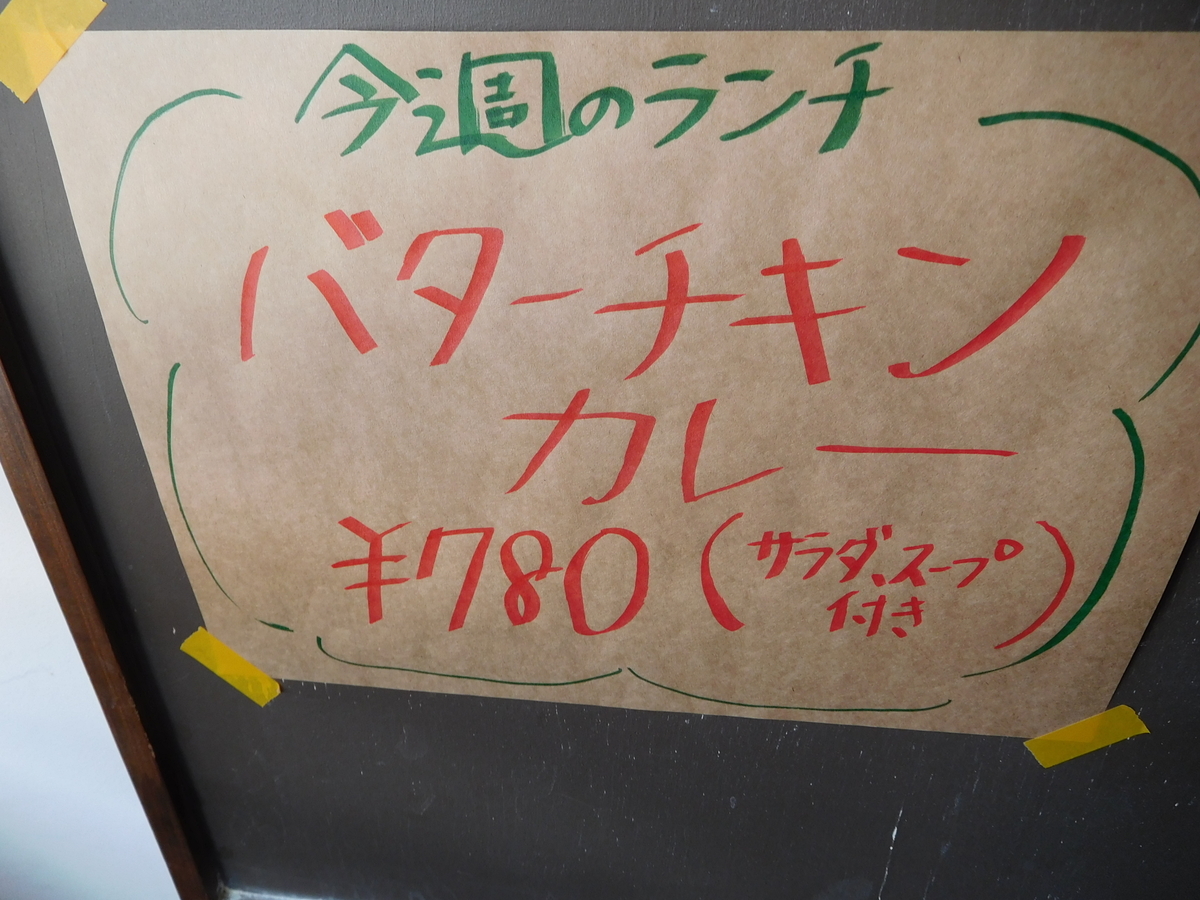 今週のランチ
バターチキン
カレー
¥780(サラダ、スープ
付き)